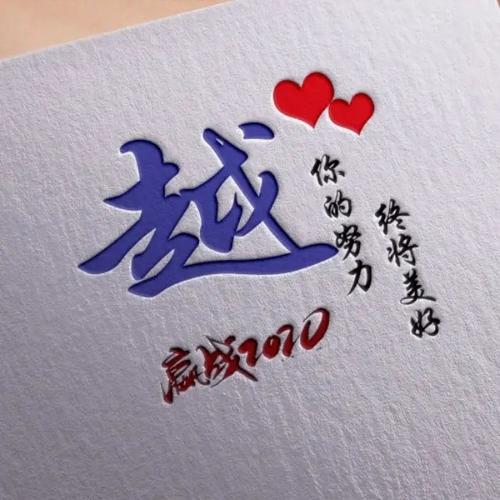 越
你的努力
终将美好
赢战2020